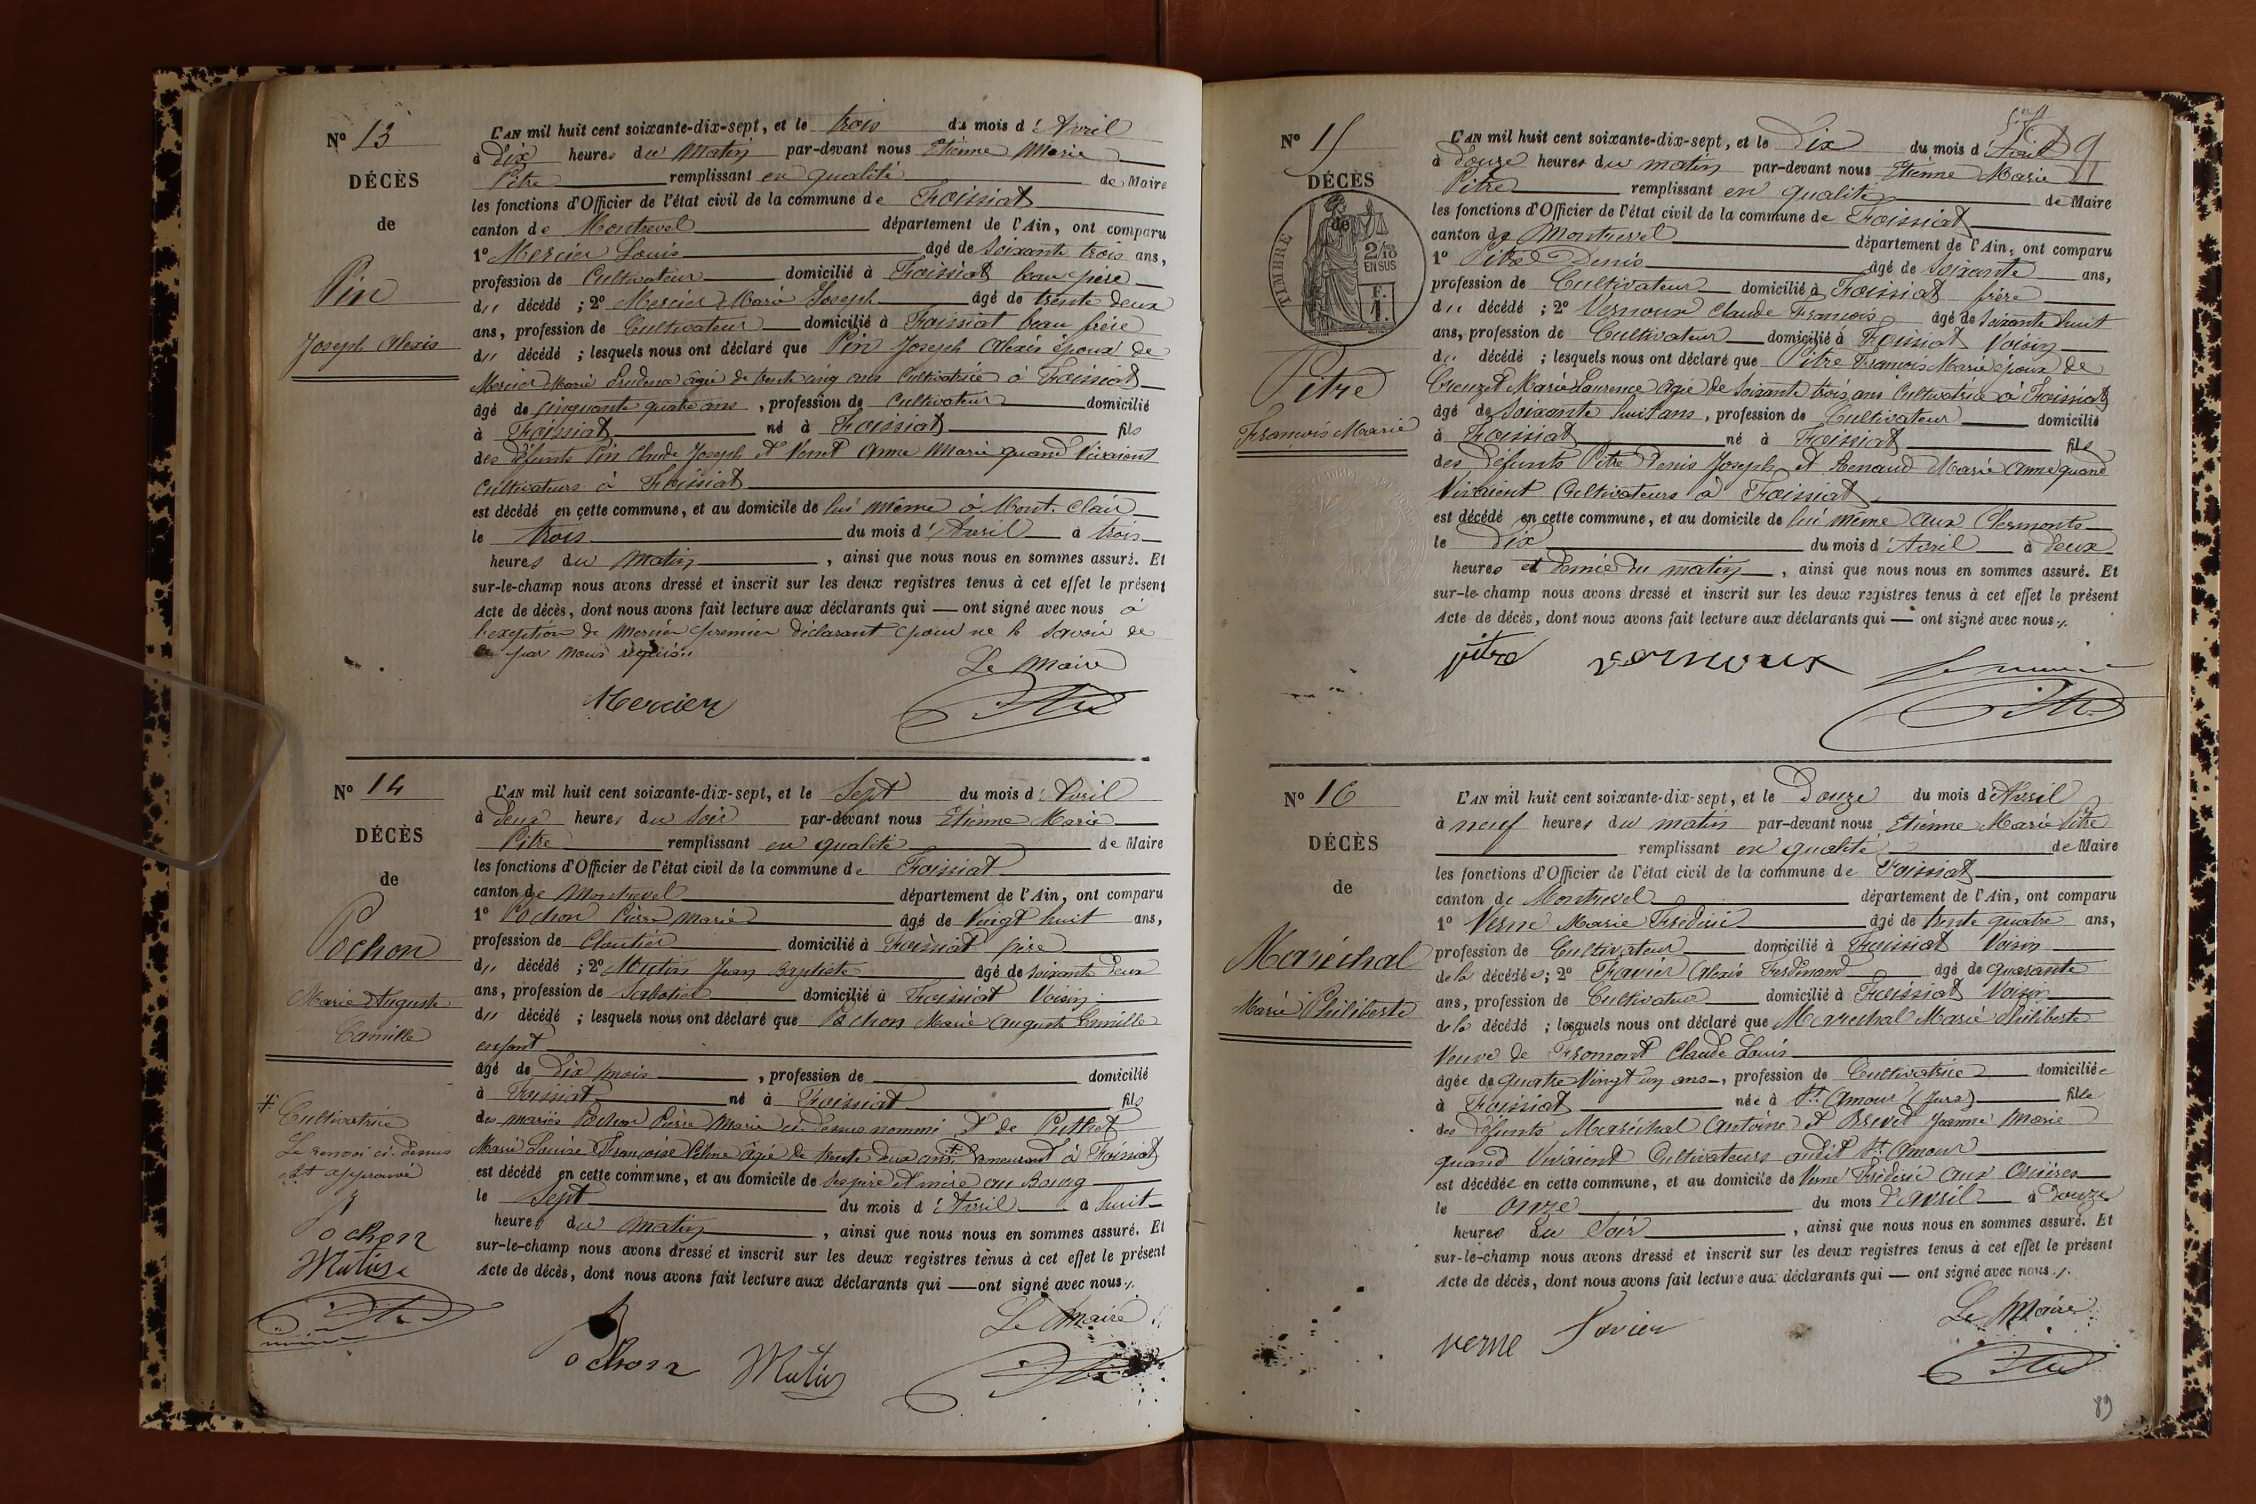 Nº 13
DÉCÈS
de
Pin
Joseph Alexis
L'AN mil huit cent soixante-dix-sept, et le trois du mois d'Avril
à Dix heures du Matin par-devant nous Etienne Marie
Pitre remplissant en qualité de Maire
les fonctions d'Officier de l'état civil de la commune de Foissiat
canton de Montrevel département de l'Ain, ont comparu
1º Mercier Louis âgé de soixante trois ans,
profession de Cultivateur domicilié à Foissiat beau père
du décédé ; 2º Mercier Marie Joseph âgé de trente deux
ans, profession de Cultivateur domicilié à Foissiat beau frère
du décédé ; lesquels nous ont déclaré que Pin Joseph Alexis époux de
Mercier Marie âgée de trente cinq ans Cultivatrice à Foissiat
âgé de cinquante quatre ans, profession de Cultivateur domicilié
à Foissiat né à Foissiat fils
des défunts Pin Claude Joseph et Anne Marie quand vivaient
Cultivateurs à Foissiat
est décédé en cette commune, et au domicile de lui même à Mont-Clair
le trois du mois d'Avril à trois
heures du Matin, ainsi que nous nous en sommes assuré. Et
sur-le-champ nous avons dressé et inscrit sur les deux registres tenus à cet effet le présent
Acte de décès, dont nous avons fait lecture aux déclarants qui — ont signé avec nous à
l'exeption de Mercier premier déclarant pour ne le savoir de
ce par nous réquis.
Le Maire
Mercier
Pitre
Nº 14
DÉCÈS
de
Pochon
Marie Auguste
Camille
L'AN mil huit cent soixante-dix-sept, et le Sept du mois d'Avril
à Deux heures du Soir par-devant nous Etienne Marie
Pitre remplissant en qualité de Maire
les fonctions d'Officier de l'état civil de la commune de Foissiat
canton de Montrevel département de l'Ain, ont comparu
1º Pochon Pierre Marie âgé de Vingt huit ans,
profession de Cloutier domicilié à Foissiat père
du décédé ; 2º Mutin Jean Baptiste âgé de soixante Deux
ans, profession de Sabotier domicilié à Foissiat Voisin
du décédé ; lesquels nous ont déclaré que Pochon Marie Auguste Camille
enfant
âgé de Dix mois, profession de domicilié
à Foissiat né à Foissiat fils
des mariés Pochon Pierre Marie ci-dessus nommé et de Puthet
Marie Louise Françoise âgée de trente deux ans + demeurant à Foissiat
est décédé en cette commune, et au domicile de ses père et mère au Bourg
le Sept du mois d'Avril à huit
heures du Matin, ainsi que nous nous en sommes assuré. Et
sur-le-champ nous avons dressé et inscrit sur les deux registres tenus à cet effet le présent
Acte de décès, dont nous avons fait lecture aux déclarants qui — ont signé avec nous
+ Cultivatrice
Le renvoi ci-dessus
est approuvé
Pochon
Mutin
Pitre
maire
Le Maire
Pochon Mutin Pitre
Nº 15
DÉCÈS
de
TIMBRE
2/10
EN SUS
F.
1.
Pitre
François Marie
L'AN mil huit cent soixante-dix-sept, et le Dix du mois d'Avril
à Douze heures du matin par-devant nous Etienne Marie
Pitre remplissant en qualité de Maire
les fonctions d'Officier de l'état civil de la commune de Foissiat
canton de Montrevel département de l'Ain, ont comparu
1º Pitre Denis âgé de soixante ans,
profession de Cultivateur domicilié à Foissiat frère
du décédé ; 2º Vernoux Claude François âgé de soixante huit
ans, profession de Cultivateur domicilié à Foissiat Voisin
du décédé ; lesquels nous ont déclaré que Pitre François Marie époux de
Creuzet Marie Laurence âgée de soixante trois ans Cultivatrice à Foissiat
âgé de soixante huit ans, profession de Cultivateur domicilié
à Foissiat né à Foissiat fils
des défunts Pitre Denis Joseph et Renaud Marie Anne quand
Vivaient Cultivateurs à Foissiat
est décédé en cette commune, et au domicile de lui même aux Clermonts
le Dix du mois d'Avril à Deux
heures et Demie du matin, ainsi que nous nous en sommes assuré. Et
sur-le-champ nous avons dressé et inscrit sur les deux registres tenus à cet effet le présent
Acte de décès, dont nous avons fait lecture aux déclarants qui — ont signé avec nous
pitre vernoux Le maire
Pitre
Nº 16
DÉCÈS
de
Maréchal
Marie Philiberte
L'AN mil huit cent soixante-dix-sept, et le Douze du mois d'Avril
à neuf heures du matin par-devant nous Etienne Marie Pitre
remplissant en qualité de Maire
les fonctions d'Officier de l'état civil de la commune de Foissiat
canton de Montrevel département de l'Ain, ont comparu
1º Verne Marie Frédéric âgé de trente quatre ans,
profession de Cultivateur domicilié à Foissiat Voisin
de la décédée ; 2º Favier Alexis Ferdinand âgé de quarante
ans, profession de Cultivateur domicilié à Foissiat Voisin
de la décédé ; lesquels nous ont déclaré que Maréchal Marie Philiberte
Veuve de Fromont Claude Louis
âgée de quatre Vingt un ans, profession de Cultivatrice domiciliée
à Foissiat née à St. Amour (Jura) fille
des défunts Maréchal Antoine et Brevet Jeanne Marie
quand Vivaient Cultivateurs audit St. Amour
est décédée en cette commune, et au domicile de Verne Frédéric aux
le onze du mois d'avril à Douze
heures du Soir, ainsi que nous nous en sommes assuré. Et
sur-le-champ nous avons dressé et inscrit sur les deux registres tenus à cet effet le présent
Acte de décès, dont nous avons fait lecture aux déclarants qui — ont signé avec nous
Le Maire
verne Favier
Pitre
89